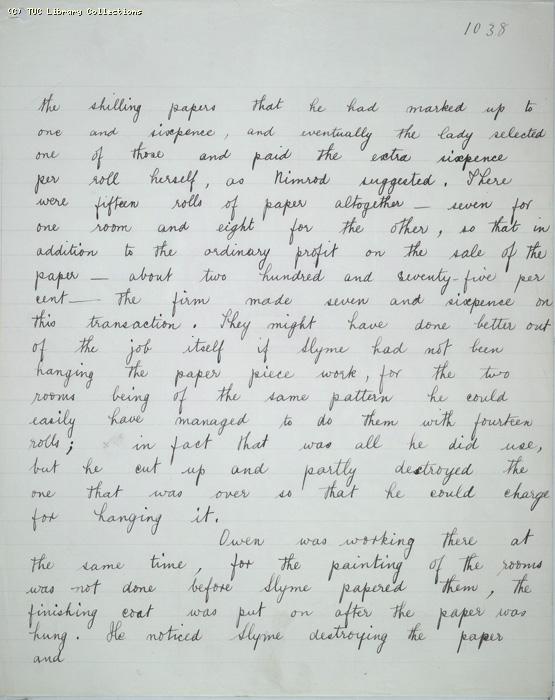 (C) TUC Library Collections
1038
the shilling papers that he had marked up to
one and sixpence, and eventually the lady selected
one of those and paid the extra sixpence
per roll herself, as Nimrod suggested. There
were fifteen rolls of paper altogether — seven for
one room and eight for the other, so that in
addition to the ordinary profit on the sale of the
paper — about two hundred and seventy-five per
cent — the firm made seven and sixpence on
this transaction. They might have done better out
of the job itself if Slyme had not been
hanging the paper piece work, for the two
rooms being of the same pattern he could
easily have managed to do them with fourteen
rolls; in fact that was all he did use,
but he cut up and partly destroyed the
one that was over so that he could charge
for hanging it.
Owen was working there at
the same time, for the painting of the rooms
was not done before Slyme papered them, the
finishing coat was put on after the paper was
hung. He noticed Slyme destroying the paper
and